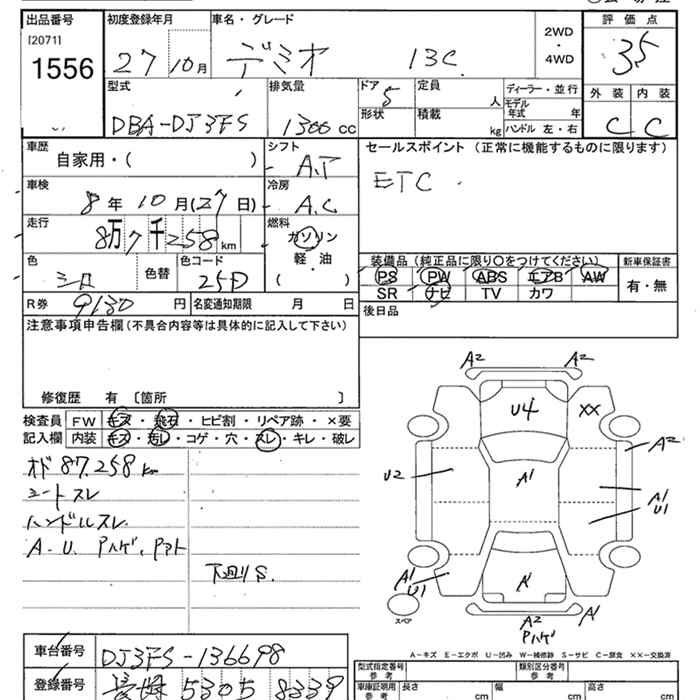 出品番号 初度登録年月 車名・グレード 評価点
[2071]
1556 27 10月 デミオ 13C 2WD・4WD 35
型式 排気量 ドア 定員 ディーラー・並行 外装 内装
DBA-DJ3FS 1300cc 5 人 モデル年式 年 C C
形状 積載 kg ハンドル 左・右
車歴 シフト セールスポイント (正常に機能するものに限ります)
自家用・( ) A.T ETC
車検 冷房
8年 10月 (27日) A.C
走行 燃料
8万7千258km ガソリン
軽・油
( )
装備品 (純正品に限り○をつけてください) 新車保証書
色 シロ 色替 色コード 25D PS PW ABS エアB AW 有・無
SR ナビ TV カワ
R券 9130円 名変通知期限 月 日
後日品
注意事項申告欄 (不具合内容等は具体的に記入して下さい)
修復歴 有 〔箇所 〕
検査員 FW キズ・飛石・ヒビ割・リペア跡・×要
記入欄 内装 キズ・汚レ・コゲ・穴・スレ・キレ・破レ
オド 87.258km
シートスレ
ハンドルスレ
A.U. Pハゲ、Pアト
下廻りS.
A2 A2
U4 XX
A2
U2 A1
A1
U1
A1
U1 A1
A1
A2
Pハゲ
スペア
A-キズ E-エクボ U-凹み W-補修跡 S-サビ C-腐食 XX-交換済
車台番号 DJ3FS-136698
型式指定番号 参考 類別区分番号 参考
登録番号 5305 8339
車庫証明用 参考 長さ cm 幅 cm 高さ cm